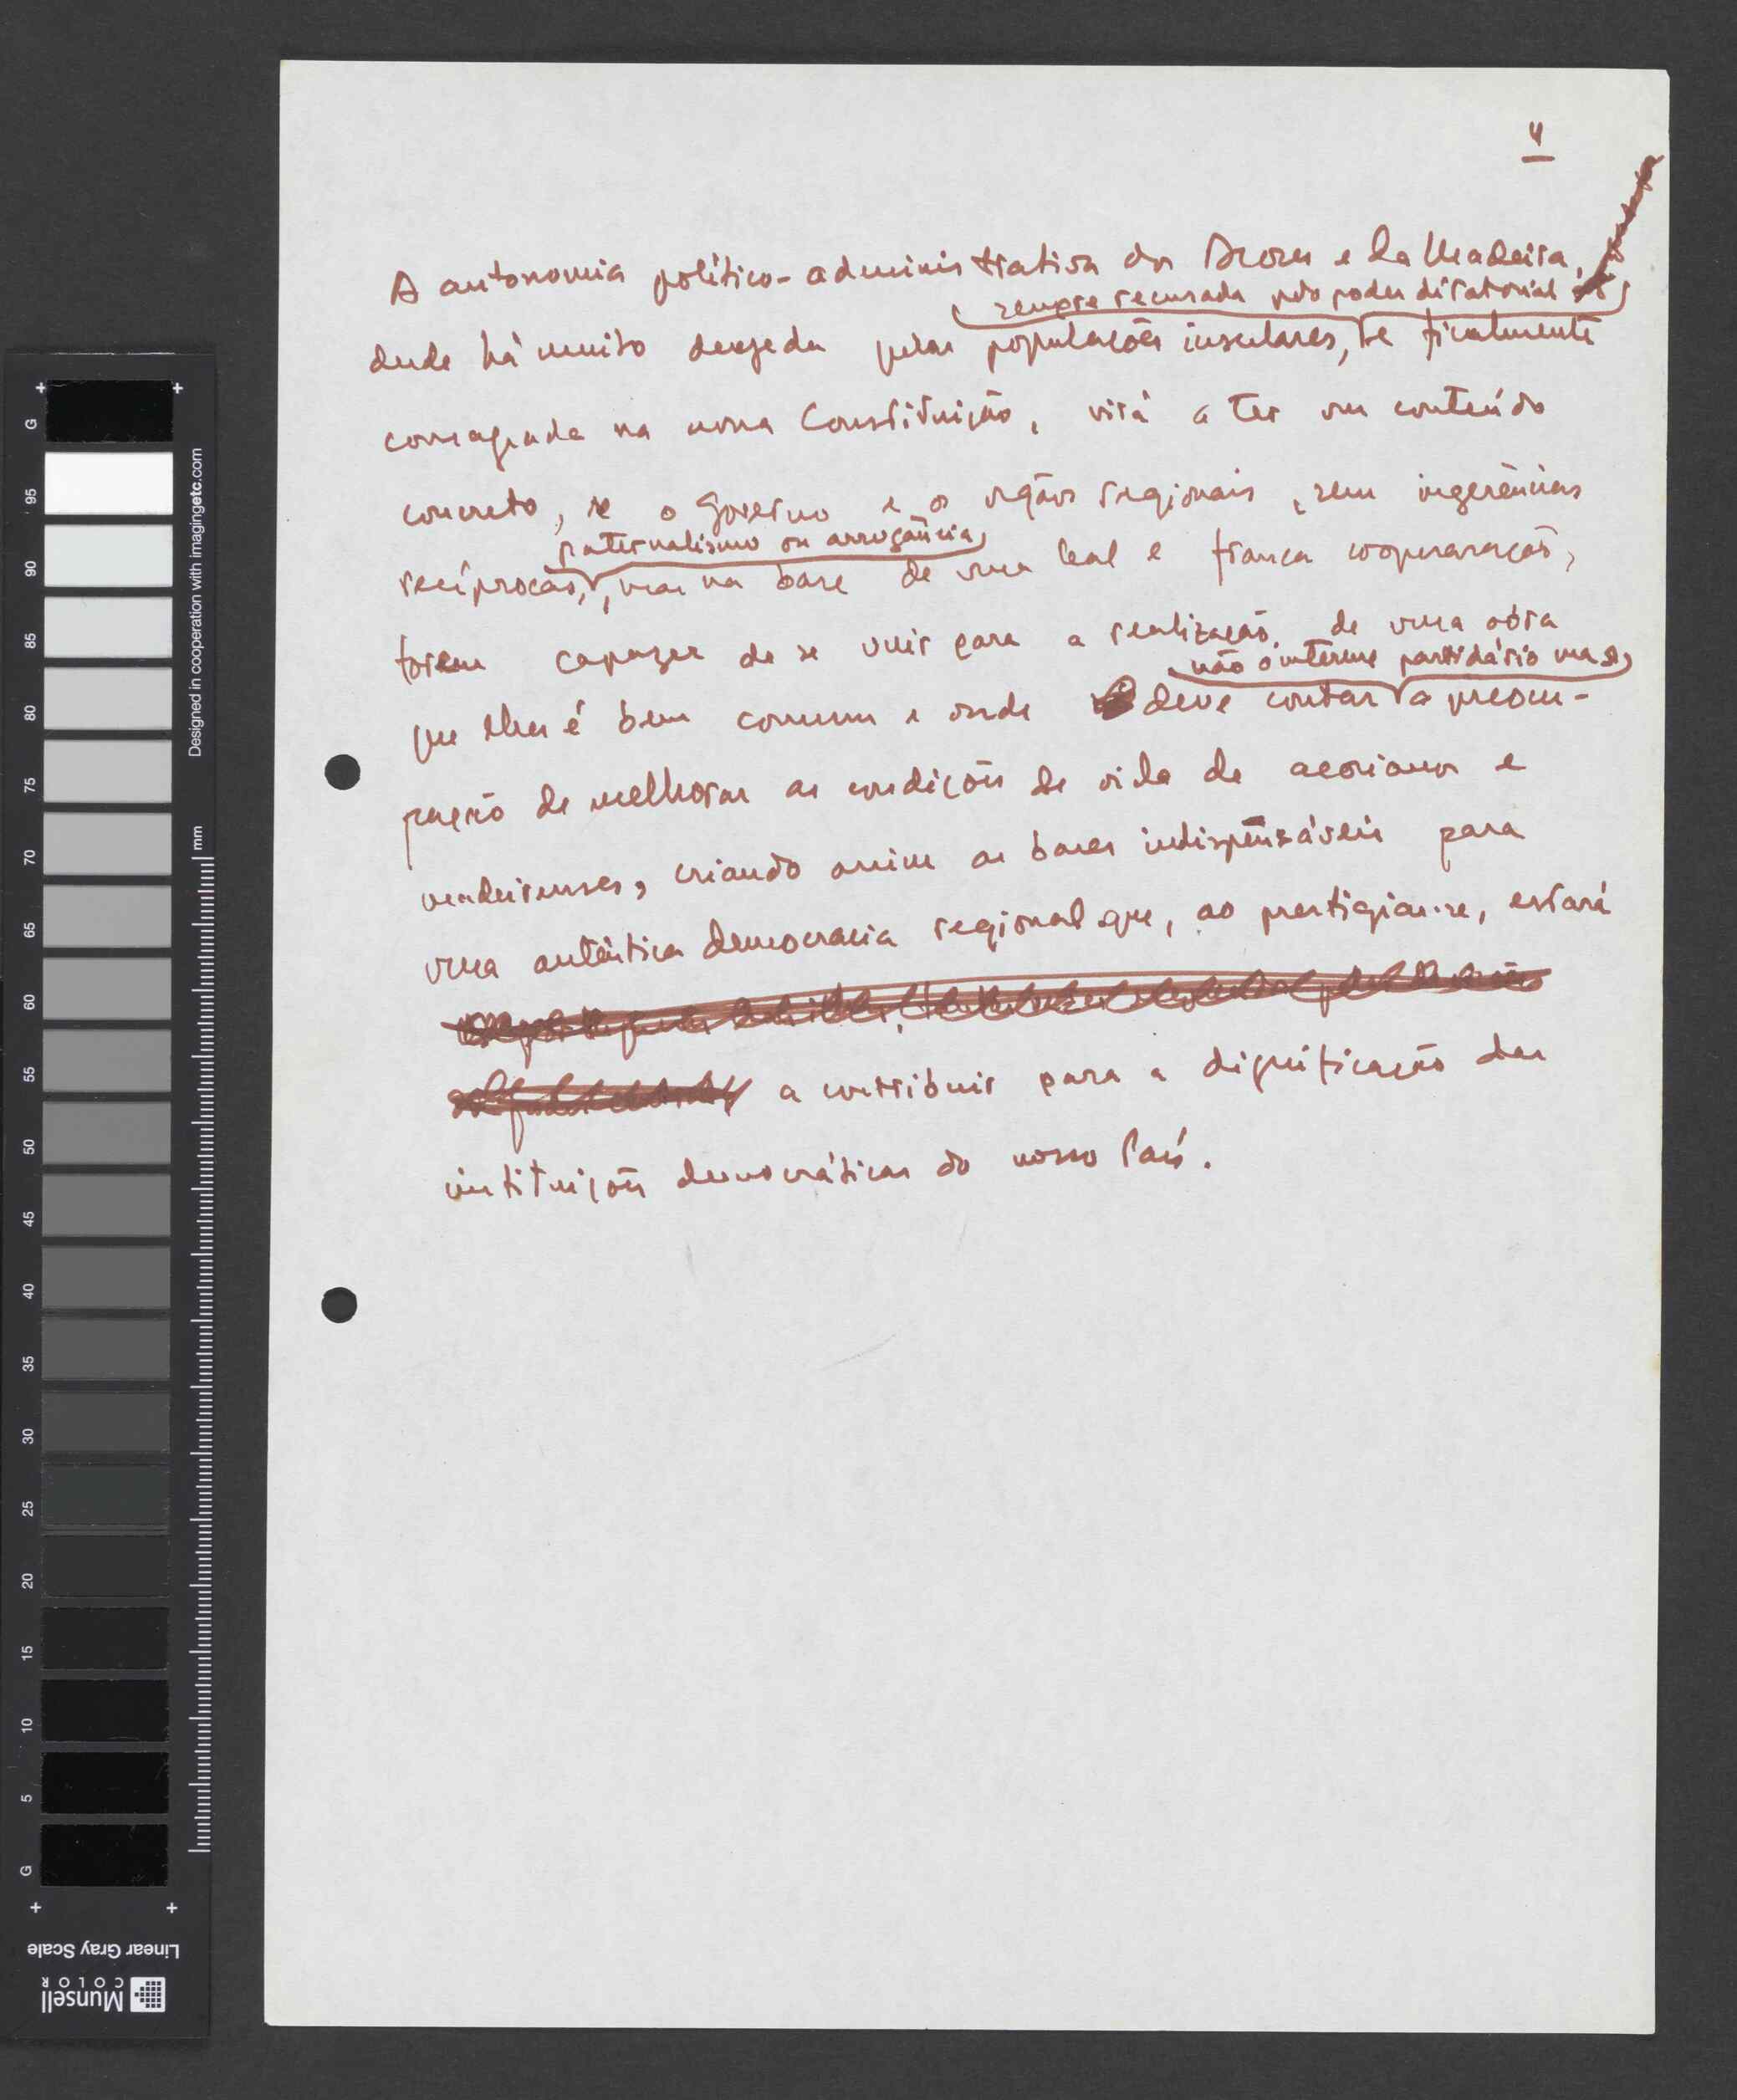 4
A autonomia político-administrativa dos Açores e da Madeira,
sempre recusada pelo poder ditatorial
desde há muito desejada pelas populações insulares, e finalmente
consagrada na nova Constituição, virá a ter um conteúdo
concreto, se o Governo e os orgãos regionais, sem ingerências
paternalismo ou arrogância,
recíprocas, mas na base de uma leal e franca cooperaração,
forem capazes de se unir para a realização de uma obra
não o interesse partidário mas
que lhes é bem comum e onde deve contar a preocu-
pação de melhorar as condições de vida de açorianos e
madeirenses, criando assim as bases indispensáveis para
uma autêntica democracia regional que, ao prestigiar-se, estará
a contribuir para a dignificação das
instituições democráticas do nosso País.
G
95
90
85
80
75
70
65
60
55
50
45
40
35
30
25
20
15
10
5
G
mm
Designed in cooperation with imagingetc.com
Linear Gray Scale
Munsell
COLOR